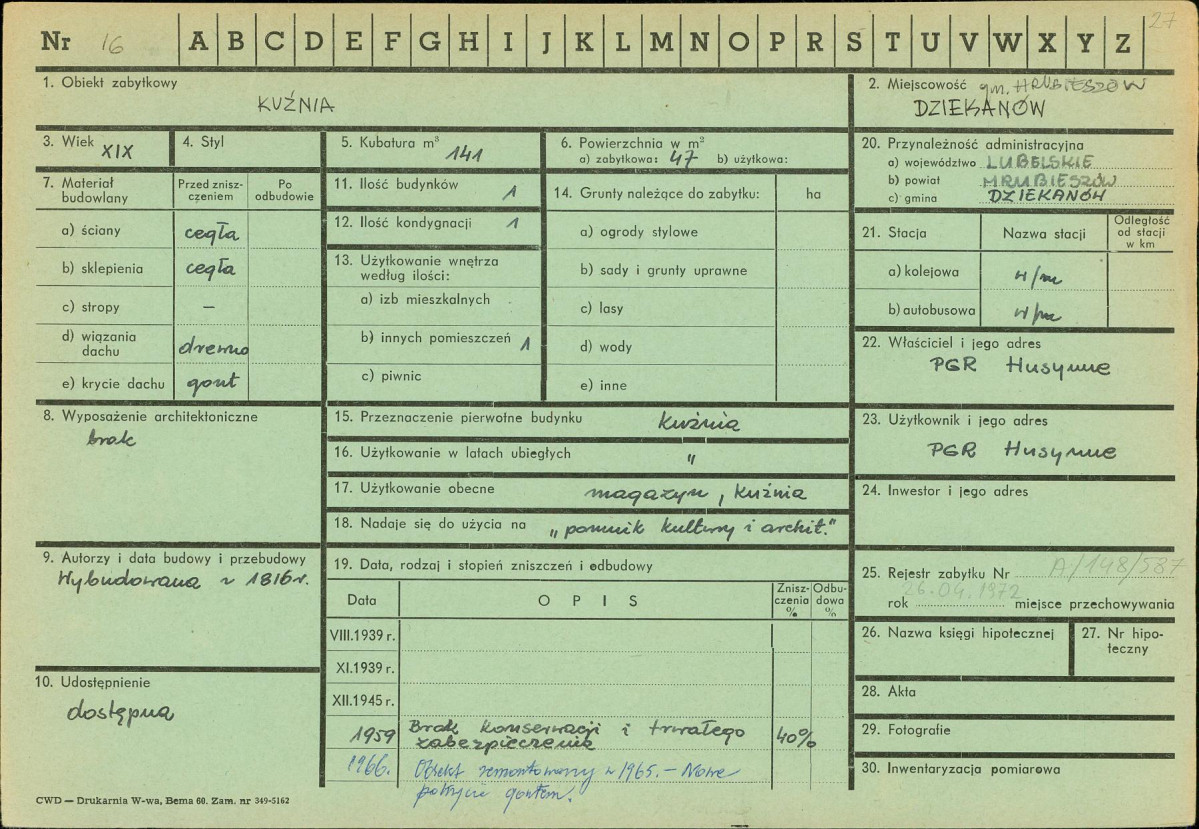 27
Nr 16 A B C D E F G H I J K L M N O P R S T U V W X Y Z
1. Obiekt zabytkowy
KUŹNIA
2. Miejscowość gm. HRUBIESZÓW
DZIEKANÓW
3. Wiek XIX
4. Styl
5. Kubatura m³ 141
6. Powierzchnia w m²
a) zabytkowa: 47 b) użytkowa:
20. Przynależność administracyjna
a) województwo LUBELSKIE
b) powiat HRUBIESZÓW
c) gmina DZIEKANÓW
7. Materiał budowlany
Przed znisz-
czeniem
Po
odbudowie
a) ściany cegła
b) sklepienia cegła
c) stropy –
d) wiązania
dachu drewno
e) krycie dachu gont
11. Ilość budynków 1
12. Ilość kondygnacji 1
13. Użytkowanie wnętrza
według ilości:
a) izb mieszkalnych
b) innych pomieszczeń 1
c) piwnic
14. Grunty należące do zabytku: ha
a) ogrody stylowe
b) sady i grunty uprawne
c) lasy
d) wody
e) inne
21. Stacja Nazwa stacji
Odległość
od stacji
w km
a) kolejowa w/m
b) autobusowa w/m
22. Właściciel i jego adres
PGR Husynne
8. Wyposażenie architektoniczne
brak
15. Przeznaczenie pierwotne budynku kuźnia
16. Użytkowanie w latach ubiegłych "
17. Użytkowanie obecne magazyn, kuźnia
18. Nadaje się do użycia na "pomnik kultury i archit."
23. Użytkownik i jego adres
PGR Husynne
24. Inwestor i jego adres
9. Autorzy i data budowy i przebudowy
Wybudowana w 1816 r.
19. Data, rodzaj i stopień zniszczeń i odbudowy
Data OPIS
Znisz-
czenia
%
Odbu-
dowa
%
VIII.1939 r.
XI.1939 r.
XII.1945 r.
1959 Brak konserwacji i trwałego
zabezpieczenia 40%
1966. Obiekt remontowany w 1965. – Nowe
pokrycie gontem.
25. Rejestr zabytku Nr A/148/587
rok 26.04.1972 miejsce przechowywania
26. Nazwa księgi hipotecznej
27. Nr hipo-
teczny
10. Udostępnienie
dostępna
28. Akta
29. Fotografie
30. Inwentaryzacja pomiarowa
CWD — Drukarnia W-wa, Bema 60. Zam. nr 349-5162